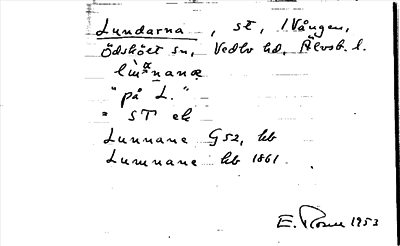 Lundarna, st, /Vången,
Ödskölt sn, Vedbo hd, Älvsb. l.
"på L."
= ST ek
Lunnane G52, kb
Lumnane kb 1861.
E. Rosen 1953